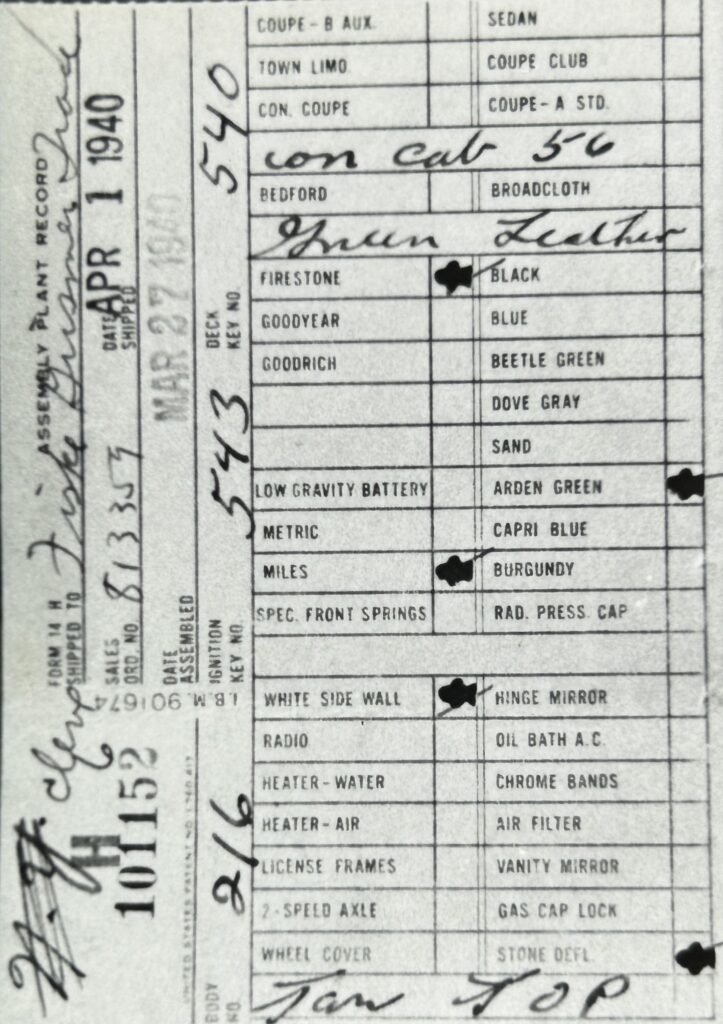 FORM 14 H ASSEMBLY PLANT RECORD
SHIPPED TO Fiske
SALES ORD. NO. 813359 DATE SHIPPED APR 1 1940
DATE ASSEMBLED MAR 27 1940
BODY NO. 216 IGNITION KEY NO. 543 DECK KEY NO. 540
N.Y.
H
101152
I.B.M. 901674
COUPE - B AUX. SEDAN
TOWN LIMO. COUPE CLUB
CON. COUPE COUPE - A STD.
con cab 56
BEDFORD BROADCLOTH
Green Leather
FIRESTONE BLACK
GOODYEAR BLUE
GOODRICH BEETLE GREEN
DOVE GRAY
SAND
LOW GRAVITY BATTERY ARDEN GREEN
METRIC CAPRI BLUE
MILES BURGUNDY
SPEC. FRONT SPRINGS RAD. PRESS. CAP
WHITE SIDE WALL HINGE MIRROR
RADIO OIL BATH A.C.
HEATER - WATER CHROME BANDS
HEATER - AIR AIR FILTER
LICENSE FRAMES VANITY MIRROR
2-SPEED AXLE GAS CAP LOCK
WHEEL COVER STONE DEFL.
Tan TOP